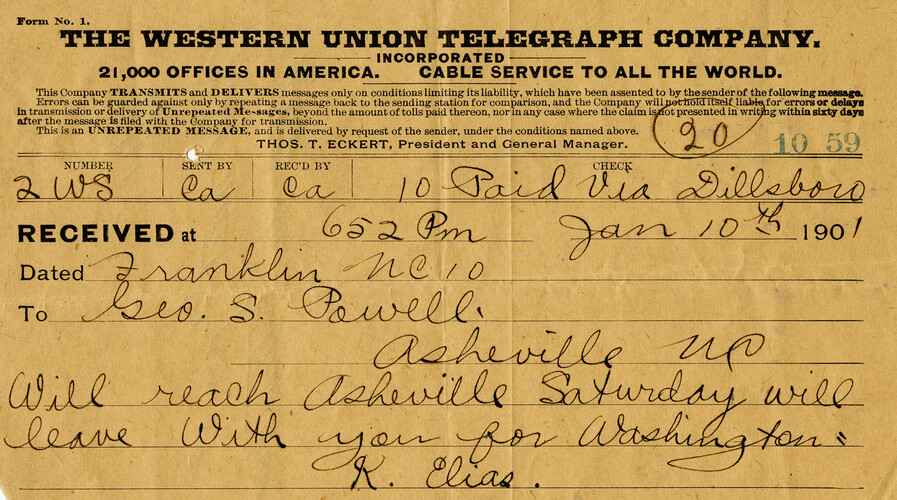 Form No. 1.
THE WESTERN UNION TELEGRAPH COMPANY.
INCORPORATED
21,000 OFFICES IN AMERICA. CABLE SERVICE TO ALL THE WORLD.
This Company TRANSMITS and DELIVERS messages only on conditions limiting its liability, which have been assented to by the sender of the following message.
Errors can be guarded against only by repeating a message back to the sending station for comparison, and the Company will not hold itself liable for errors or delays
in transmission or delivery of Unrepeated Messages, beyond the amount of tolls paid thereon, nor in any case where the claim is not presented in writing within sixty days
after the message is filed with the Company for transmission.
This is an UNREPEATED MESSAGE, and is delivered by request of the sender, under the conditions named above.
THOS. T. ECKERT, President and General Manager.
20
10 59
NUMBER SENT BY REC'D BY CHECK
2 WS Ca Ca 10 Paid Via Dillsboro
RECEIVED at 652 Pm Jan 10th 1901
Dated Franklin NC 10
To Geo. S. Powell.
Asheville NC
Will reach Asheville Saturday will
leave With you for Washington =
K. Elias.